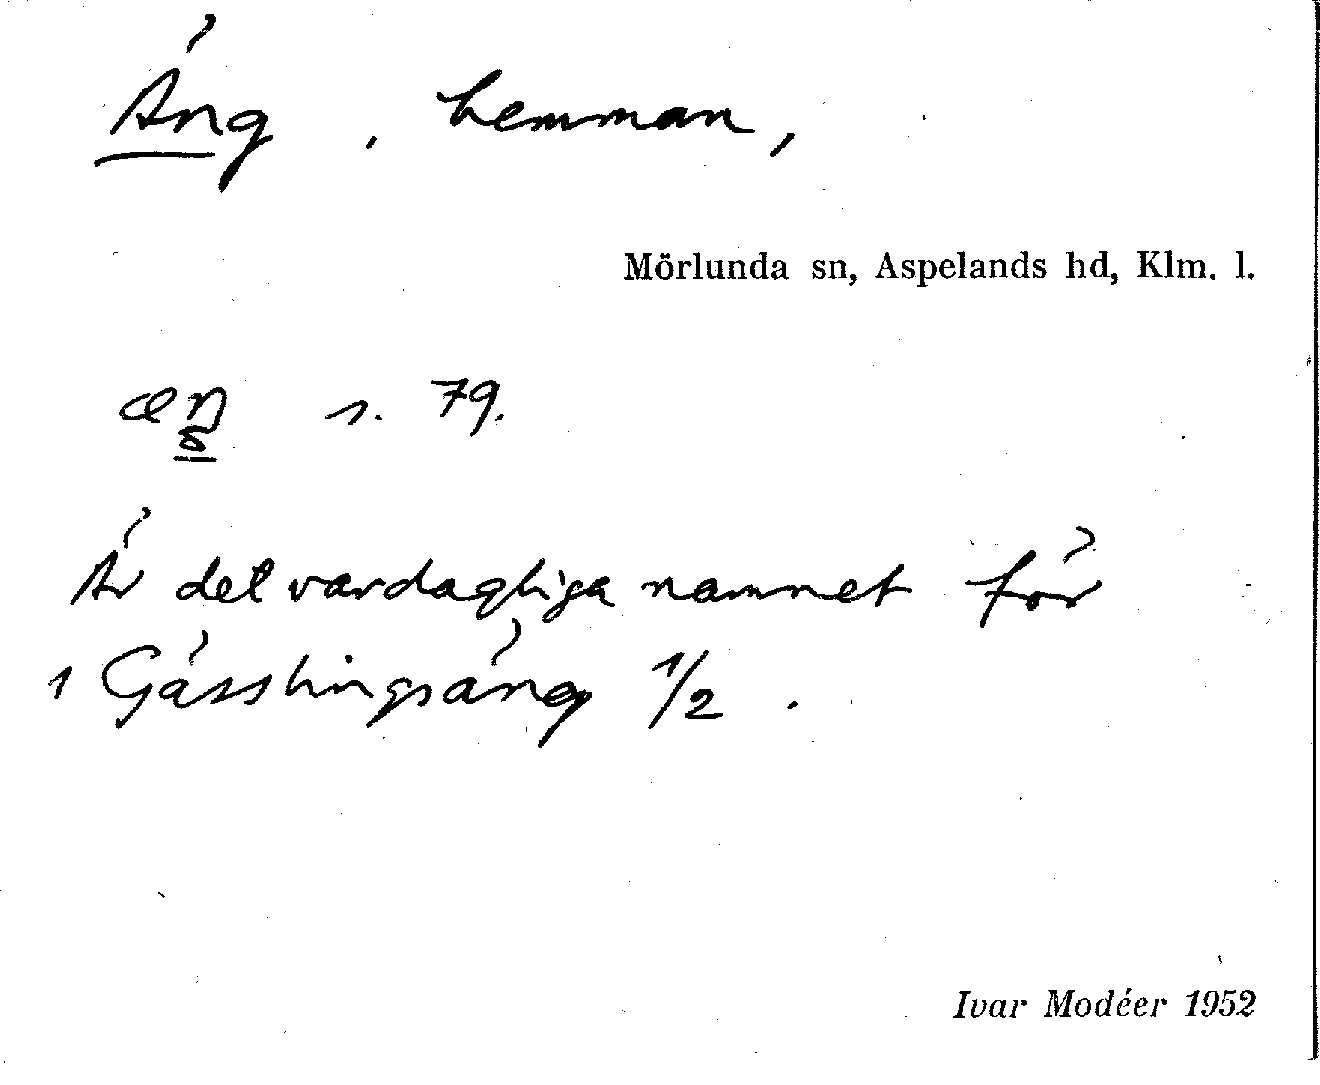 Äng, hemman,
Mörlunda sn, Aspelands hd, Klm. l.
s. 79.
Är det vardagliga namnet för
1 Gässlingsäng 1/2.
Ivar Modéer 1952